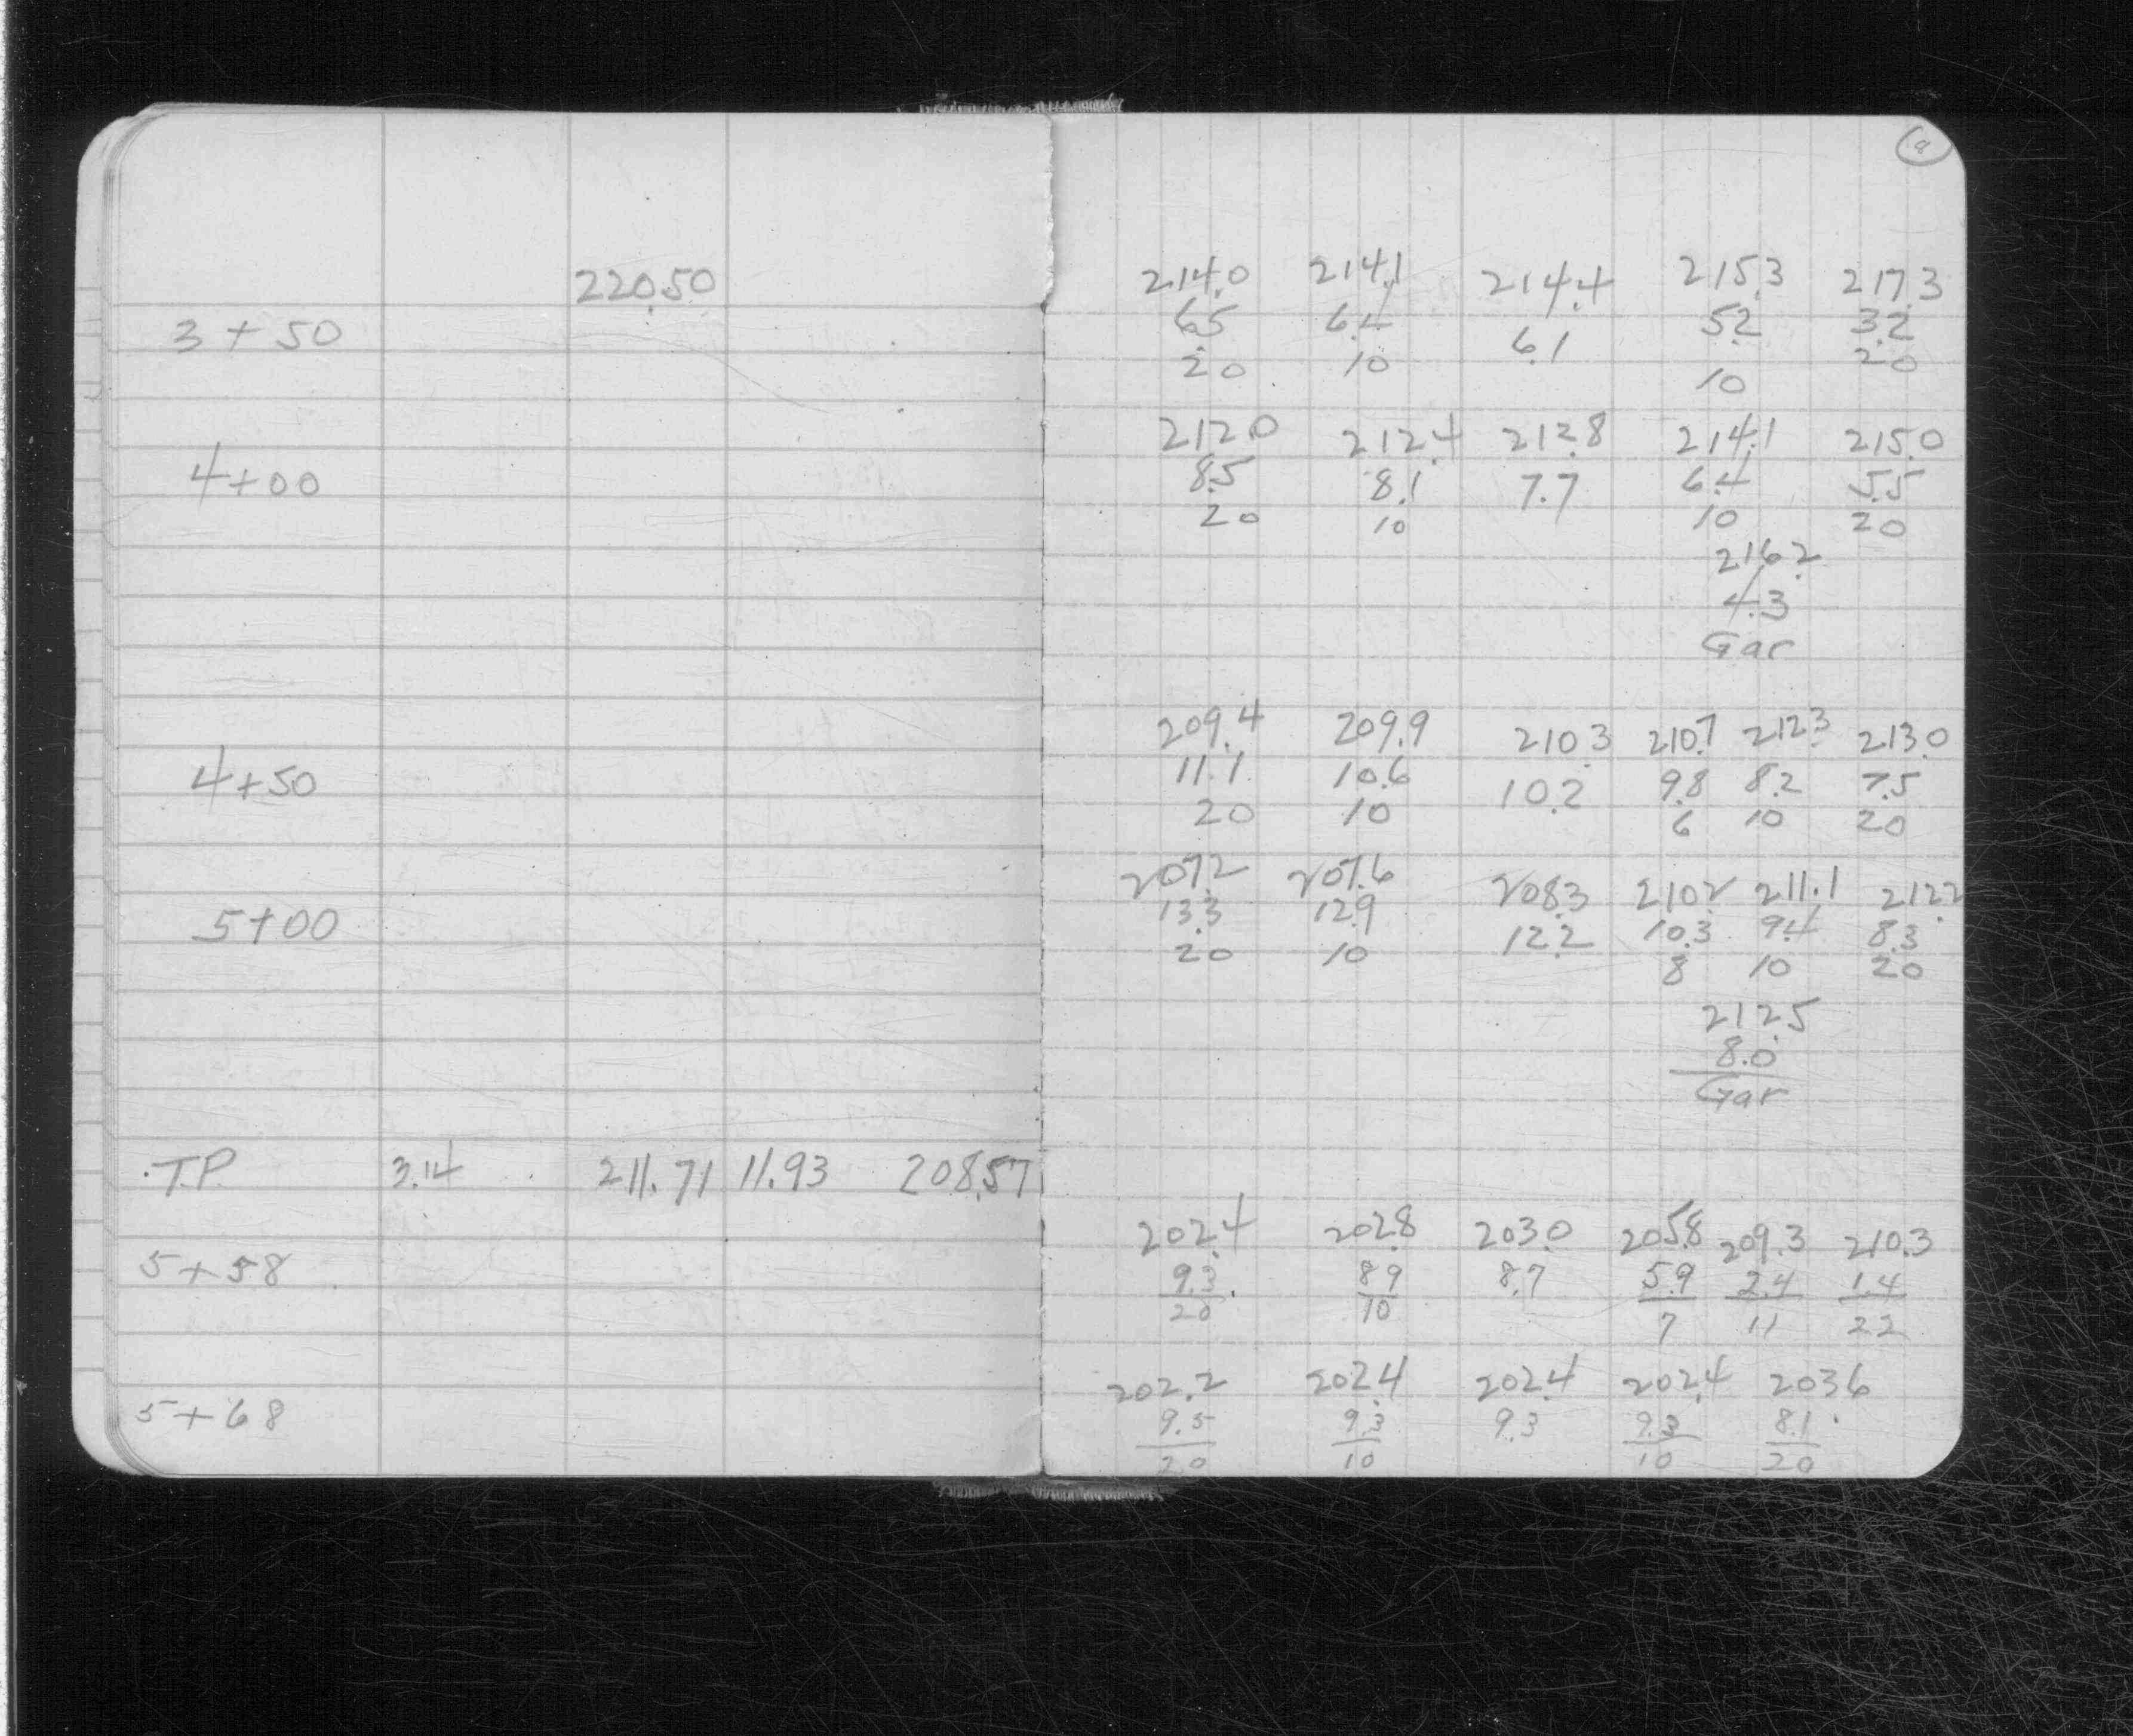 220.50
3 + 50
4+00
4+50
5+00
T.P. 3.14 211.71 11.93 208.57
5+58
5+68
214.0 214.1 214.4 215.3 217.3
6.5 6.4 6.1 5.2 3.2
20 10 10 20
212.0 212.4 212.8 214.1 215.0
8.5 8.1 7.7 6.4 5.5
20 10 10 20
216.2
4.3
Gar
209.4 209.9 210.3 210.7 212.3 213.0
11.1 10.6 10.2 9.8 8.2 7.5
20 10 6 10 20
207.2 207.6 208.3 210.2 211.1 212.2
13.3 12.9 12.2 10.3 9.4 8.3
20 10 8 10 20
212.5
8.0
Gar
202.4 202.8 203.0 205.8 209.3 210.3
9.3 8.9 8.7 5.9 2.4 1.4
20 10 7 11 22
202.2 202.4 202.4 202.4 203.6
9.5 9.3 9.3 9.3 8.1
20 10 10 20